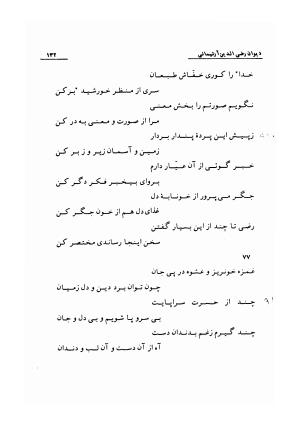 دیوان رضی الدین آرتیمانی
۱۳۲
خدا" را کوری خفّاش طبعان
سری از منظر خورشید "بر کن
نگویم صورتم را بخش معنی
مرا از صورت و معنی به در کن
ز پیش این پردهٔ پندار بردار
زمین و آسمان زیر و زبر کن
خبر گوئی از آن عیّار دارم
بروای بیخبر فکر دگر کن
جگر می پرور از خونابهٔ دل
غذای دل هم از خون جگر کن
رضی تا چند از این بسیار گفتن
سخن اینجا رساندی مختصر کن
۷۷
غمزه خونریز و عشوه در پی جان
چون توان برد دین و دل زمیان
چند از حسرت سراپایت
بی سر و پا شویم و بی دل و جان
چند گیرم ز غم بدندان دست
آه از آن دست و آن لب و دندان